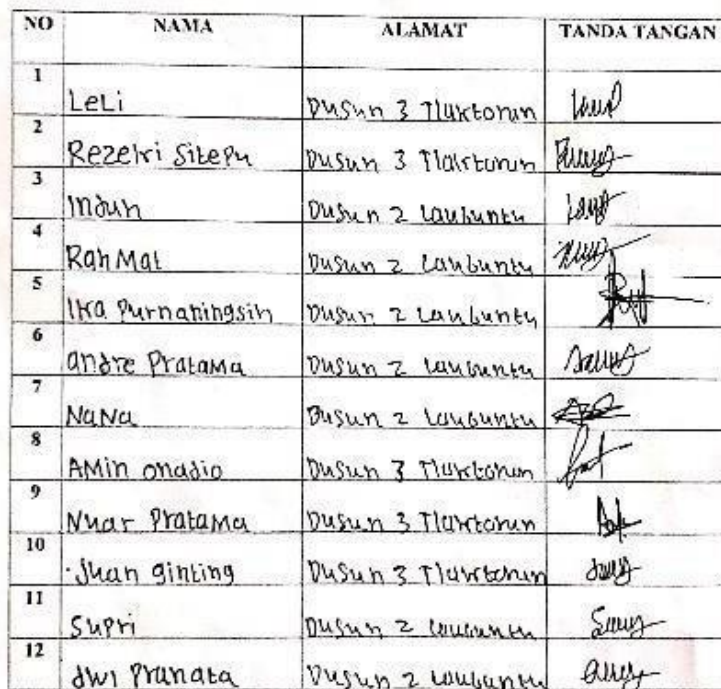 NO NAMA ALAMAT TANDA TANGAN
1 LeLi Dusun 3 Tlaktorun
2 Rezekri Sitepu Dusun 3 Tlaktorun
3 Induh Dusun 2 Laubuntu
4 RahMat Dusun 2 Laubuntu
5 Ika Purnaningsih Dusun 2 Laubuntu
6 andre PrataMa Dusun 2 Laubuntu
7 NaNa Dusun 2 Laubuntu
8 AMin onadio Dusun 3 Tlaktorun
9 Nuar PrataMa Dusun 3 Tlaktorun
10 Juan ginting Dusun 3 Tlaktorun
11 Supri Dusun 2 Laubuntu
12 dwi Pranata Dusun 2 Laubuntu